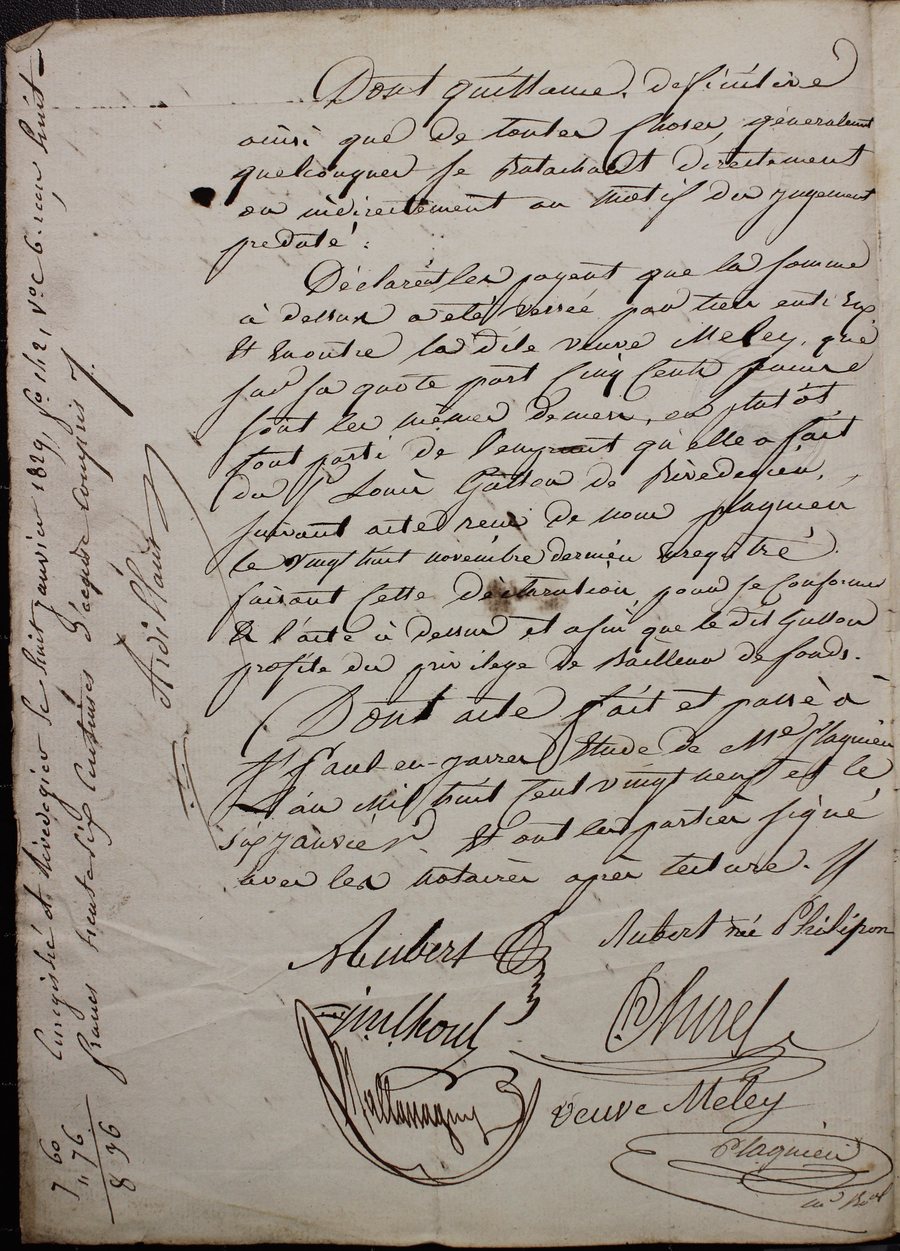 Dont quittance definitive
ainsi que de toutes choses généralement
quelconques se ratachant directement
ou indirectement au motif du jugement
predaté.
Déclarent les payent que la somme
à dessus a eté versée par tier entr'eux
Et Encontre la dite veuve Meley, que
sur sa quote part cinq Cents francs
sont les mêmes deniers, ou plutôt
font parti de l'emprunt qu'elle a fait
du Sr Louis Gallon de
suivant acte reçu de nous plagnieu
le vingt huit novembre dernier Enregistré.
faisant Cette déclaration pour se conformer
à l'acte à dessus et afin que le dit Gallon
profite du privilege de Bailleur de fonds.
Dont acte fait et passé à
St Paul-en-jarrez Etude de Me Plagnieu
L'an Mil huit Cent vingt neuf et le
six janvier. Et ont les parties signé
avec les notaires après lecture.
Aubert
Aubert née Philipon
veuve Meley
Plagnieu
Enregistré à Rivedegier le huit janvier 1829, fo 142, Vo C 6. reçu huit
francs trente six Centimes Décime compris
7 60
" 76
8 36